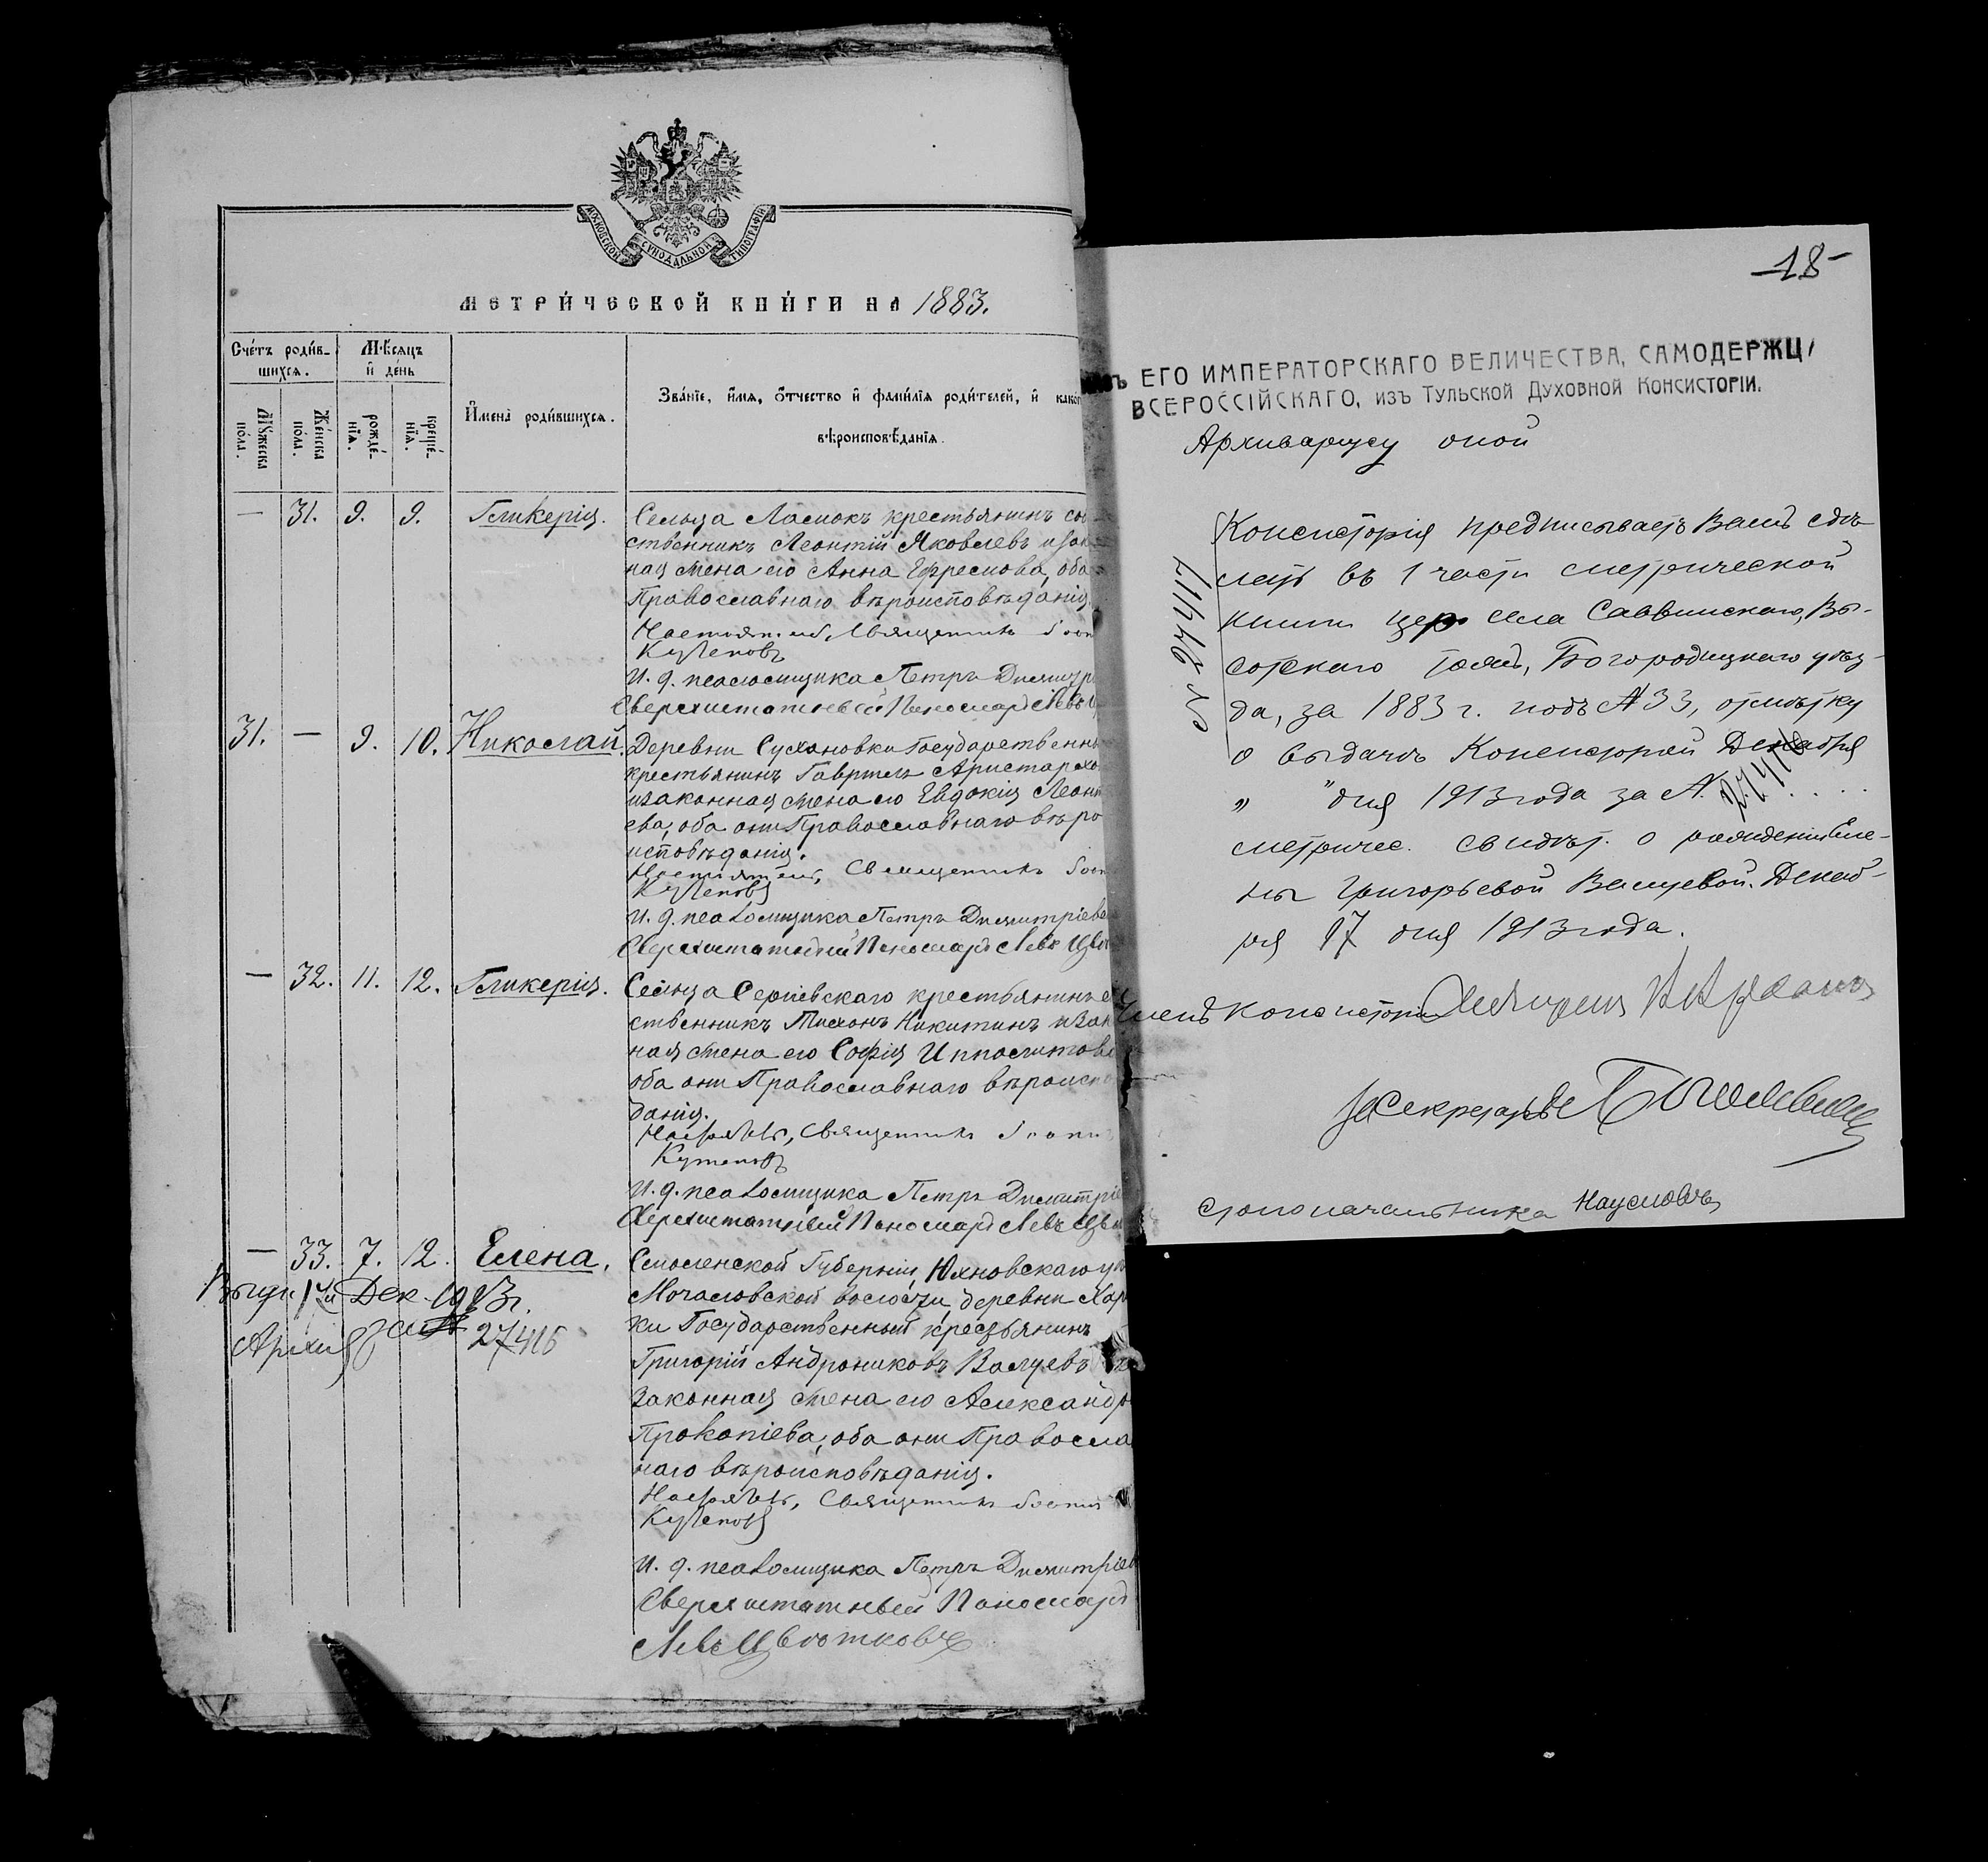 МОСКОВСКОЙ СѴНОДАЛЬНОЙ ТИПОГРАФІИ
МЕТРИ́ЧЕСКОЙ КНИ́ГИ НА 1883.
Сче́тъ роди́в-
шихсѧ.
Мѣ́сѧцъ
и҆ де́нь
Мꙋ́жеска
по́ла.
Же́нска
по́ла.
рожде́-
нїѧ.
креще́-
нїѧ.
И҆мена̀ роди́вшихсѧ.
Зва́нїе, и҆́мѧ, ѻ҆́тчество и҆ фамѝлїѧ роди́телей, и҆ како
вѣроисповѣ́данїѧ.
— 31. 9. 9. Гликерія.
Сельца крестьянинъ соб
ственникъ Леонтій Яковлевъ и закон
ная жена его Анна Ефремова, оба
Православнаго вѣроисповѣданія
Настоятель, Священникъ
Кутеповъ
И. д. псаломщика Петръ Димитрі
Сверхштатный Пономарь Левъ Цв
31. — 9. 10. Николай.
Деревни Сухановки Государственный
крестьянинъ Гавріилъ Аристархов
и законная жена его Евдокія Леонт
ева, оба они Православнаго вѣро
исповѣданія.
Настоятель, Священникъ
Кутеповъ
И. д. псаломщика Петръ Димитріев
Сверхштатный Пономарь Левъ Цвѣт
— 32. 11. 12. Гликерія.
Сельца Сергіевскаго крестьянинъ с
ственникъ Тихонъ Никитинъ и зак
ная жена его Софія Ипполитова
оба они Православнаго вѣроиспо
данія.
Настоятель, Священникъ
Кутеповъ
И. д. псаломщика Петръ Димитріе
Сверхштатный Пономарь Левъ Цвѣ
— 33. 7. 12. Елена.
Смоленской Губерніи, Юхновскаго у
Мочаловской волости, деревни Хар
ки Государственный крестьянинъ
Григорій Андрониковъ Валуевъ и
законная жена его Александр
Прокопіева, оба они Правосла
наго вѣроисповѣданія.
Настоятель, Священникъ
Кутеповъ
И. д. псаломщика Петръ Димитріев
Сверхштатный Пономарь
Левъ Цвѣтковъ
Выдан 17 Дек. 1913 г.
за № 27416
-18-
ЕГО ИМПЕРАТОРСКАГО ВЕЛИЧЕСТВА, САМОДЕРЖЦ
ВСЕРОССІЙСКАГО, ИЗЪ ТУЛЬСКОЙ ДУХОВНОЙ КОНСИСТОРІИ.
Архиваріусу оной
№ 27417
Консисторія предписываетъ Вамъ сдѣ-
лать въ 1 части метрической
книги цер. села Саввинскаго, Вы-
сотскаго тожъ, Богородицкаго уѣз-
да, за 1883 г. подъ № 33, отмѣтку
о выдачѣ Консисторіей Декабря
„ " дня 1913 года за № 27416
метричес. свидѣт. о рожденіи Еле-
ны Григорьевой Валуевой. Декаб-
ря 17 дня 1913 года.
Членъ Консисторіи
За Секретаря
Столоначальника Наумовъ